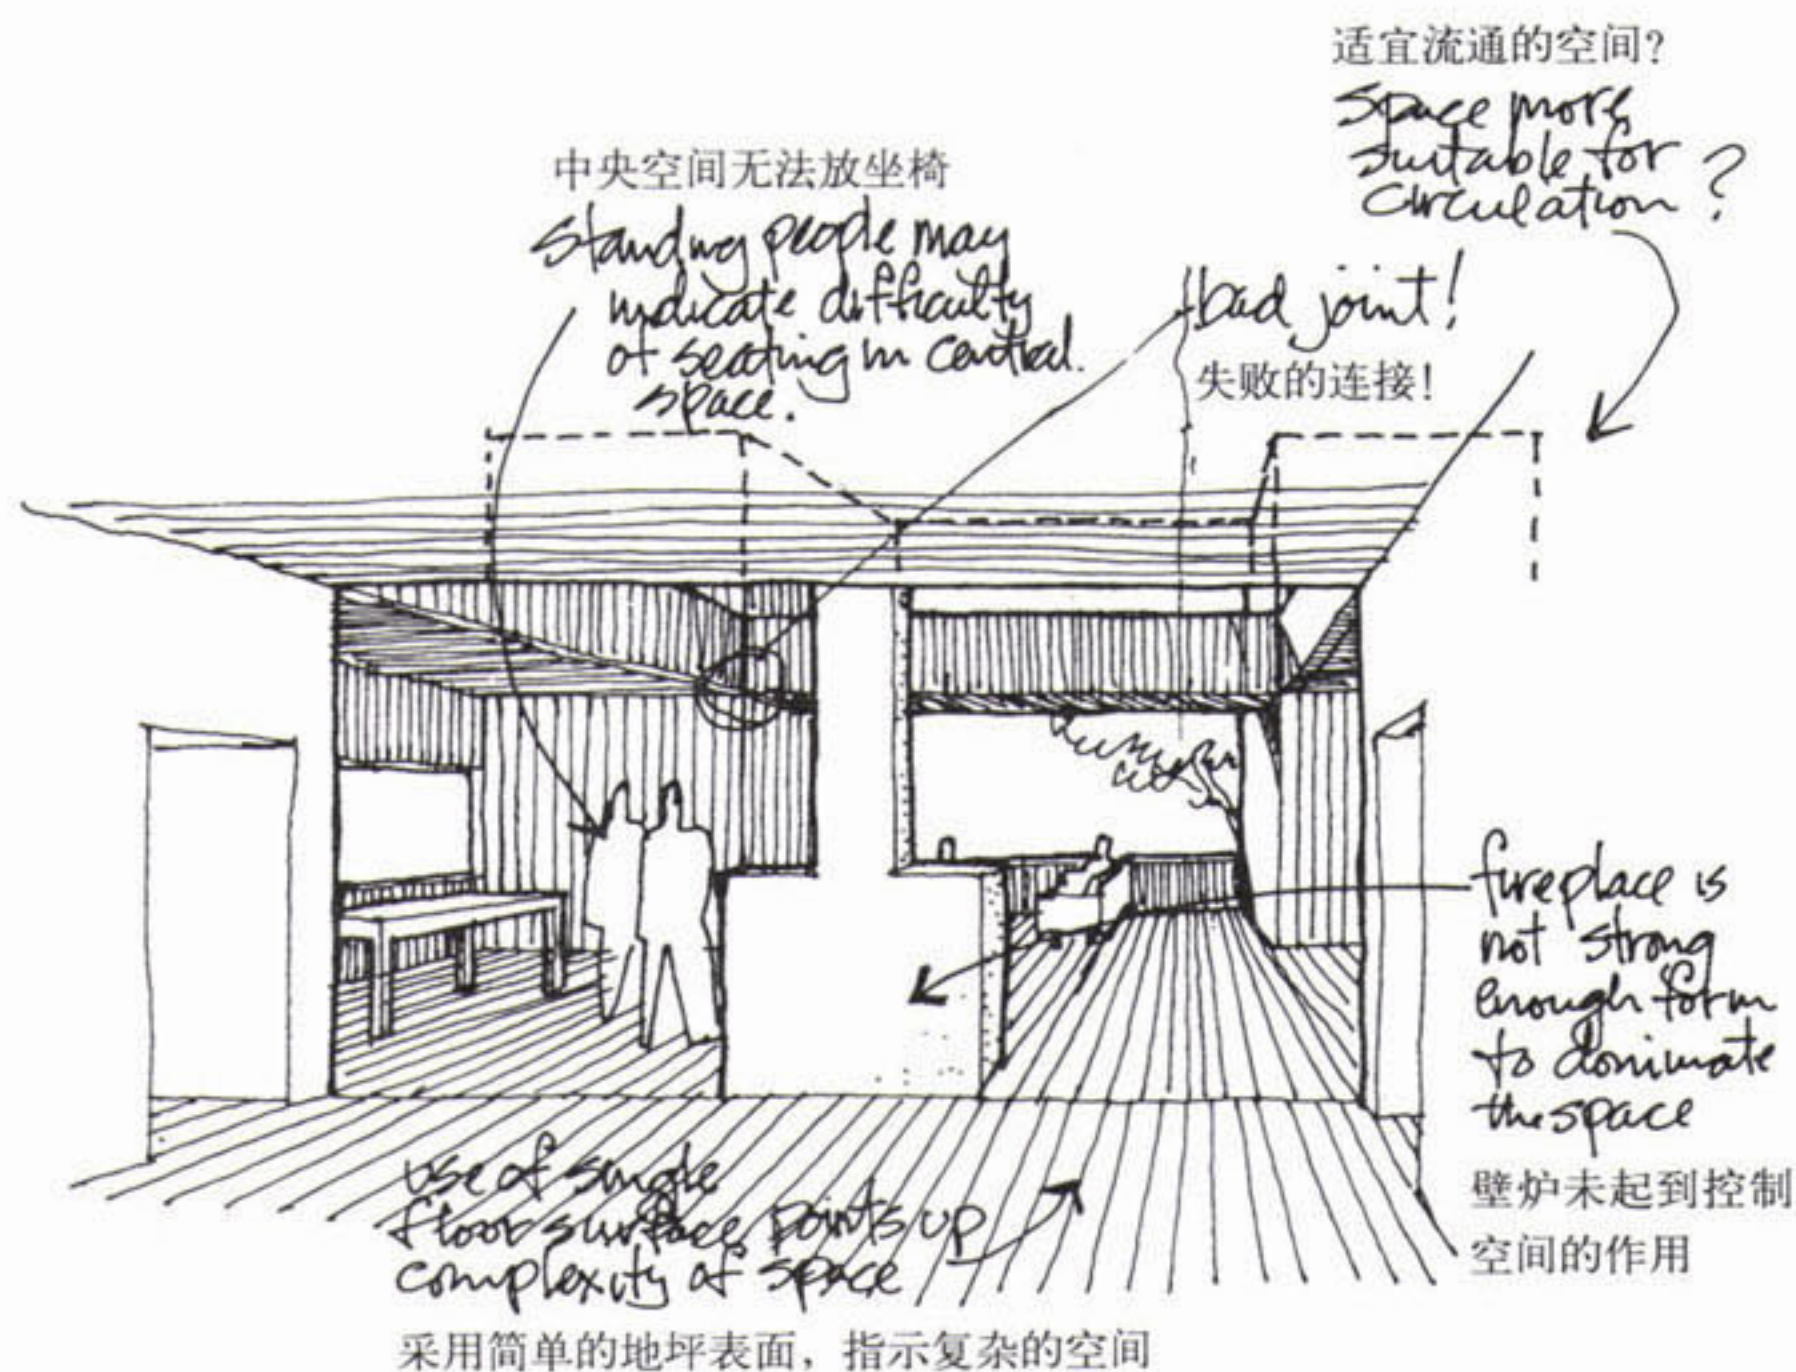 适宜流通的空间?
space more
suitable for
circulation ?
中央空间无法放坐椅
standing people may
indicate difficulty
of seating in central
space.
bad joint!
失败的连接!
fireplace is
not strong
enough form
to dominate
the space
壁炉未起到控制
空间的作用
use of single
floor surface points up
complexity of space
采用简单的地坪表面，指示复杂的空间